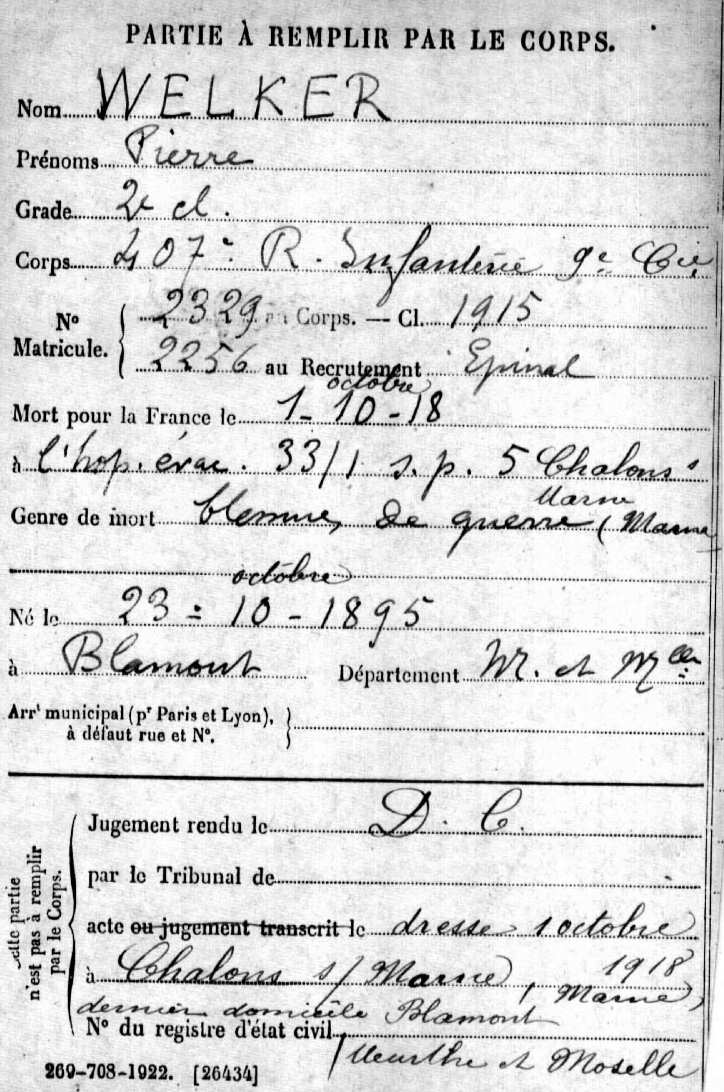 PARTIE À REMPLIR PAR LE CORPS.
Nom WELKER
Prénoms Pierre
Grade 2e cl.
Corps 407e R. Infanterie 9e Cie
No Matricule. 2329 au Corps. — Cl. 1915
2256 au Recrutement Epinal
octobre
Mort pour la France le 1-10-18
à l'hop. évac. 33/1 s.p. 5 Chalons s/
Marne
Genre de mort blessures de guerre (Marne
octobre
Né le 23-10-1895
à Blamont Département M. et Mlle
Arrt municipal (pr Paris et Lyon),
à défaut rue et No.
Cette partie n'est pas à remplir par le Corps.
Jugement rendu le D. C.
par le Tribunal de
acte ou jugement transcrit le dressé 1 octobre
1918
à Chalons s/ Marne, Marne,
dernier domicile Blamont
No du registre d'état civil
Meurthe et Moselle
269-708-1922. [26434]